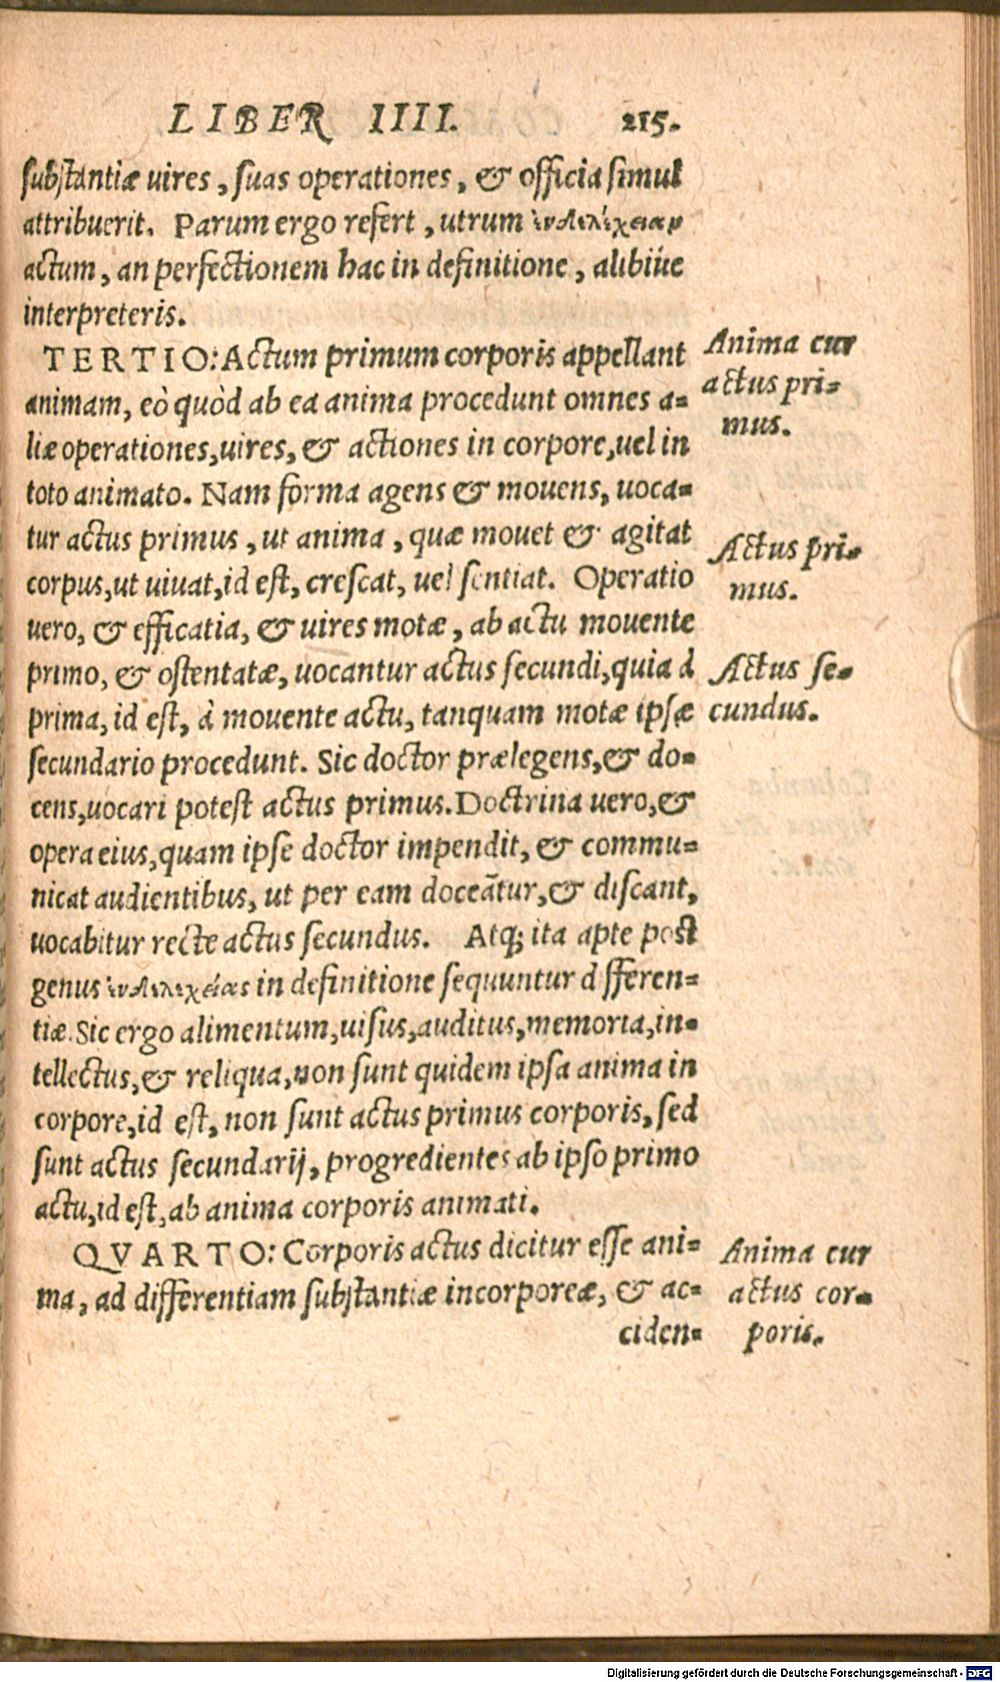 LIBER IIII. 215.
substantiæ uires, suas operationes, & officia simul
attribuerit. Parum ergo refert, utrum ἐνδελέχειαν
actum, an perfectionem hac in definitione, alibiúe
interpreteris.
TERTIO: Actum primum corporis appellant
animam, eò quòd ab ea anima procedunt omnes a-
liæ operationes, uires, & actiones in corpore, uel in
toto animato. Nam forma agens & mouens, uoca-
tur actus primus, ut anima, quæ mouet & agitat
corpus, ut uiuat, id est, crescat, uel sentiat. Operatio
uero, & efficatia, & uires motæ, ab actu mouente
primo, & ostentatæ, uocantur actus secundi, quia à
prima, id est, à mouente actu, tanquam motæ ipsæ
secundario procedunt. Sic doctor prælegens, & do-
cens, uocari potest actus primus. Doctrina uero, &
opera eius, quam ipse doctor impendit, & commu-
nicat audientibus, ut per eam doceātur, & discant,
uocabitur recte actus secundus. Atq; ita apte post
genus ἐνδελεχείας in definitione sequuntur d fferen-
tiæ. Sic ergo alimentum, uisus, auditus, memoria, in-
tellectus, & reliqua, non sunt quidem ipsa anima in
corpore, id est, non sunt actus primus corporis, sed
sunt actus secundarij, progredientes ab ipso primo
actu, id est, ab anima corporis animati.
QVARTO: Corporis actus dicitur esse ani-
ma, ad differentiam substantiæ incorporeæ, & ac-
ciden-
Anima cur
actus pri-
mus.
Actus pri-
mus.
Actus se-
cundus.
Anima cur
actus cor-
poris.
Digitalisierung gefördert durch die Deutsche Forschungsgemeinschaft - DFG